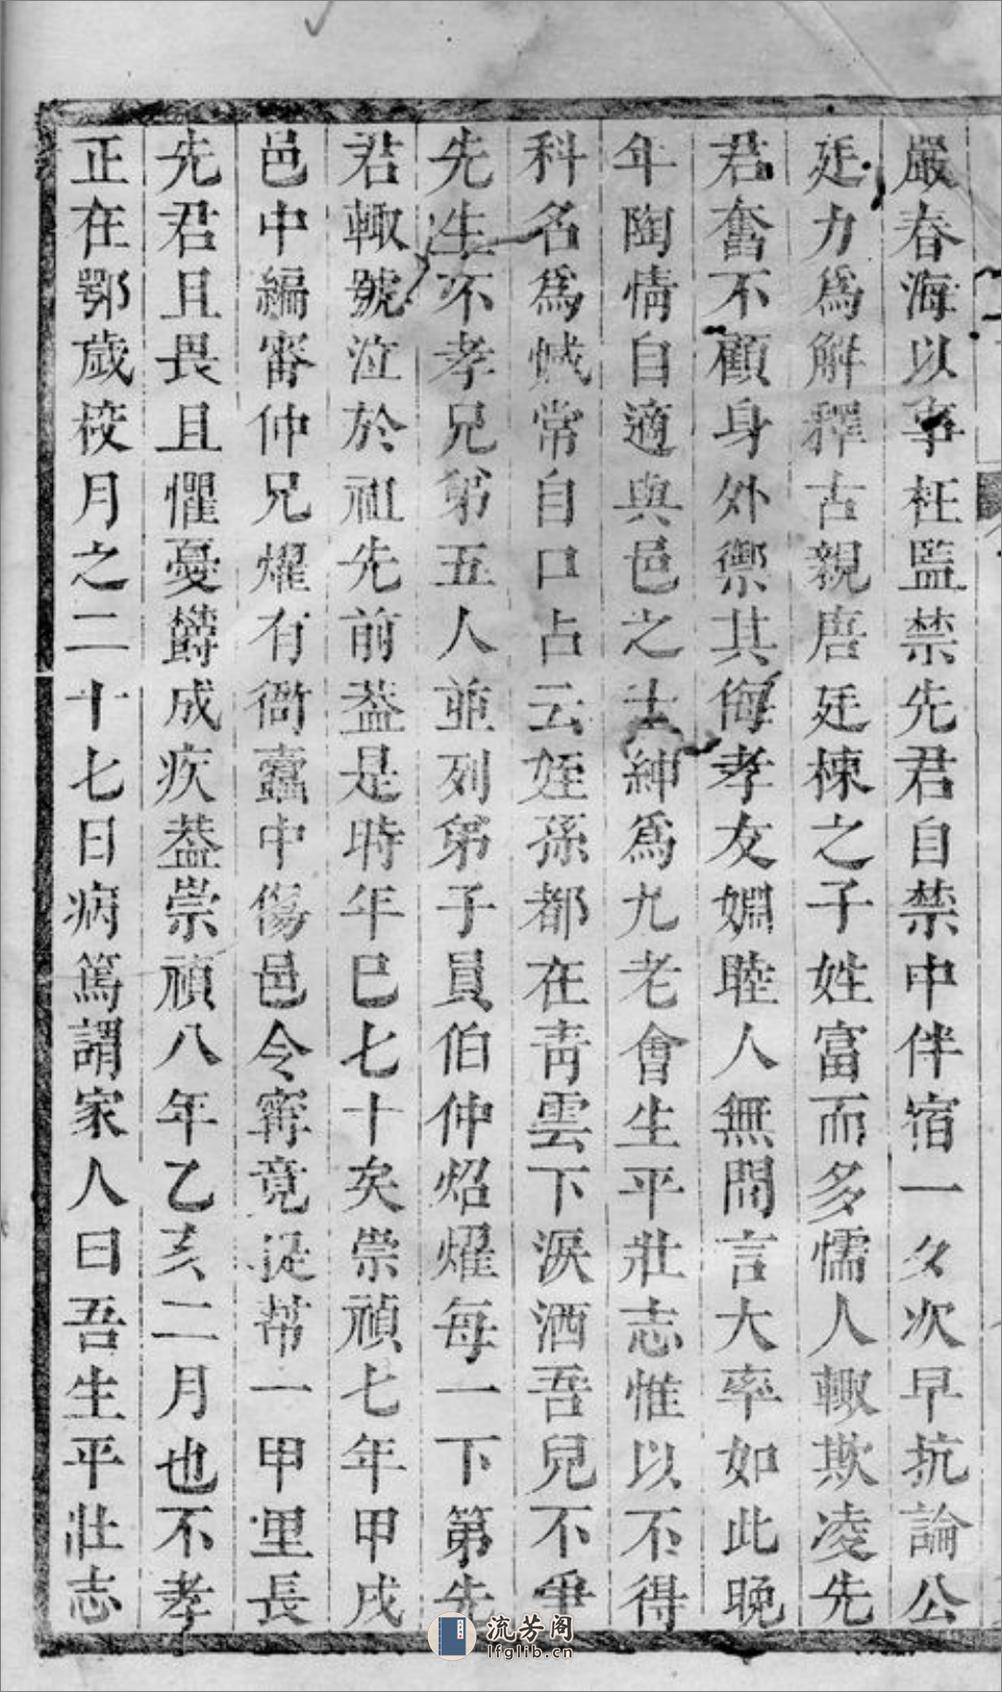 嚴春海以事枉監禁先君自禁中伴宿一夕次早抗論公
廷力爲解釋古親唐廷棟之子姓富而多懦人輙欺凌先
君奮不顧身外禦其侮孝友婣睦人無間言大率如此晚
年陶情自適與邑之士紳爲九老會生平壯志惟以不得
科名爲憾常自口占云姪孫都在靑雲下淚洒吾兒不爭
先生不孝兄弟五人並列弟子員伯仲炤燿每一下第先
君輙號泣於祖先前葢是時年巳七十矣崇禎七年甲戌
邑中編審仲兄燿有衙蠹中傷邑令寗竟從幇一甲里長
先君且畏且懼憂欝成疾葢崇禎八年乙亥二月也不孝
正在鄂歲校月之二十七日病篤謂家人曰吾生平壯志
流芳阁
lfglib.cn